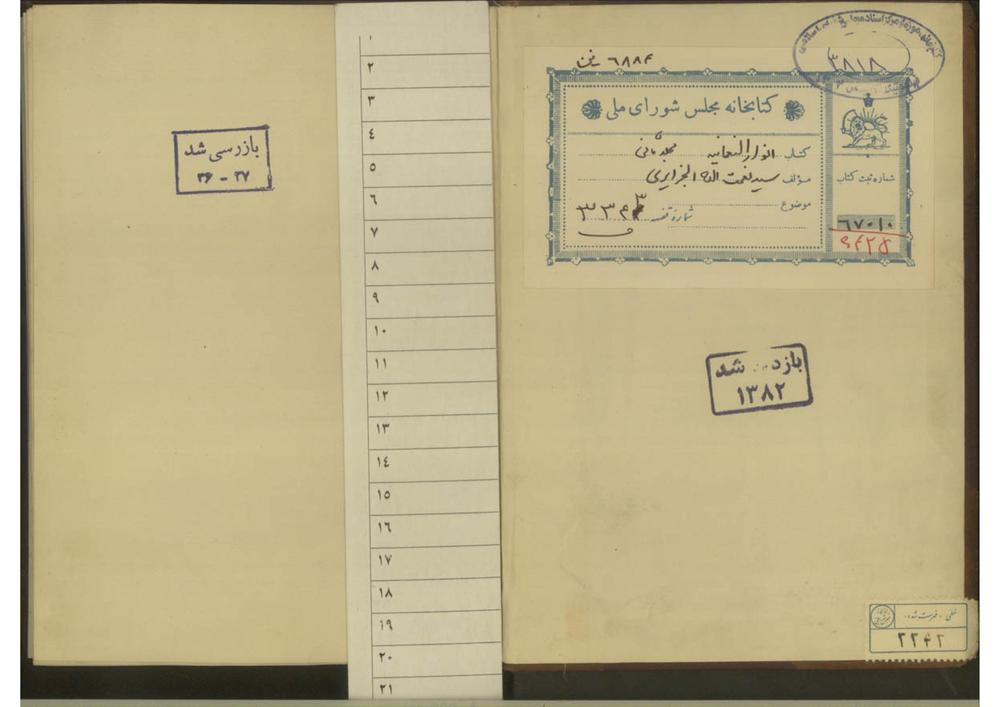 ۶۸۸۴
۳۸۱۸
کتابخانه مجلس شورای ملی
کتاب انوار النعمانیه مجلد ثانی
مؤلف سید نعمت الله الجزایری
موضوع
شماره قفسه ۳۳۴۳
شماره ثبت کتاب
۶۷۰۱۰
۹۴۲۵
بازدید شد
۱۳۸۲
خطی - فهرست شده
۲۲۴۲
بازرسی شد
۳۶ - ۳۷
۱
۲
۳
٤
٥
٦
۷
۸
۹
۱۰
۱۱
۱۲
۱۳
۱٤
۱٥
۱٦
۱۷
۱۸
۱۹
۲۰
۲۱